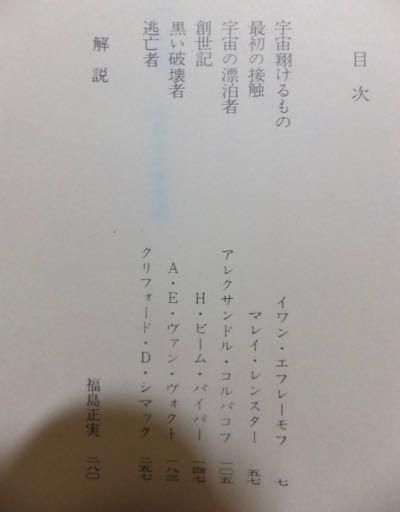 目次
宇宙翔けるもの　イワン・エフレーモフ　七
最初の接触　マレイ・レンスター　五七
宇宙の漂泊者　アレクサンドル・コルパコフ　一〇五
創世記　H・ビーム・パイパー　一四七
黒い破壊者　A・E・ヴァン・ヴォクト　一八三
逃亡者　クリフォード・D・シマック　二五七
解説　福島正実　二八〇